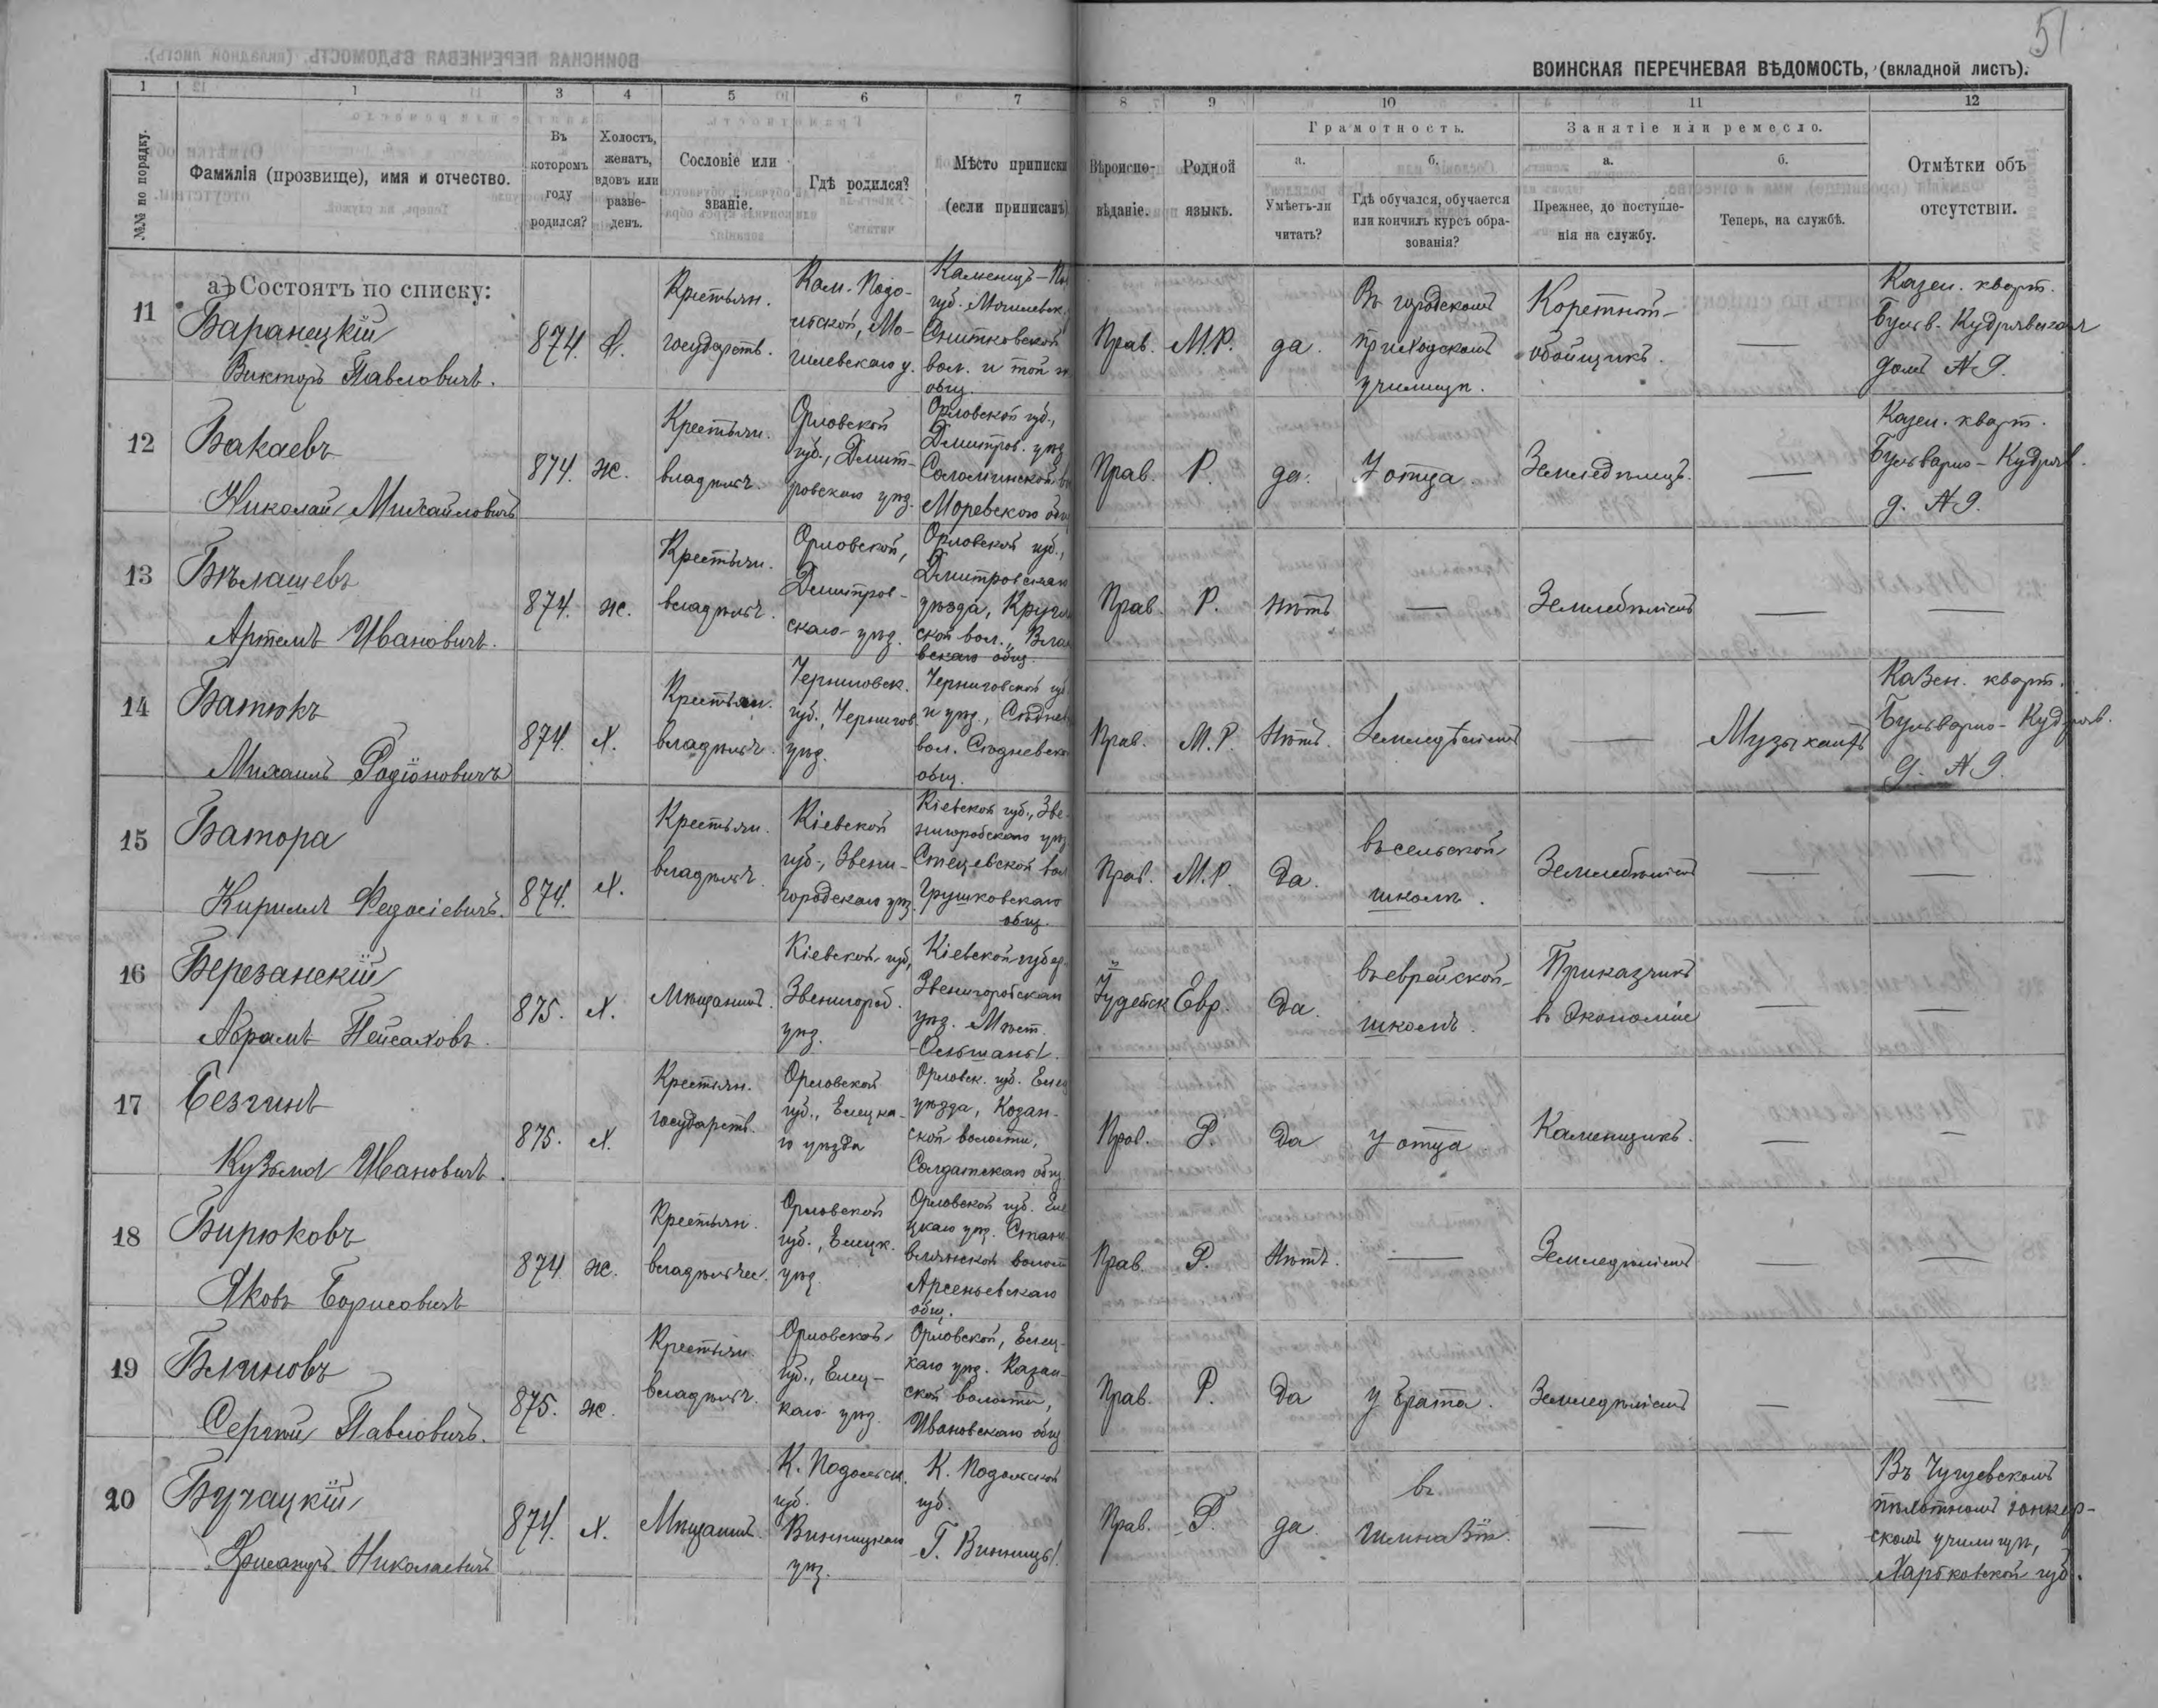 51
ВОИНСКАЯ ПЕРЕЧНЕВАЯ ВѢДОМОСТЬ, (вкладной листъ).
1 1 3 4 5 6 7 8 9 10 11 12
№№ по порядку.
Фамилія (прозвище), имя и отчество.
Въ которомъ году родился?
Холостъ, женатъ, вдовъ или разведенъ.
Сословіе или званіе.
Гдѣ родился?
Мѣсто приписки (если приписанъ)
Вѣроиспо-вѣданіе.
Родной языкъ.
Грамотность.
а. Умѣетъ-ли читать?
б. Гдѣ обучался, обучается или кончилъ курсъ обра-зованія?
Занятіе или ремесло.
а. Прежнее, до поступле-нія на службу.
б. Теперь, на службѣ.
Отмѣтки объ отсутствіи.
а) Состоятъ по списку:
11 Баранецкій
Викторъ Павловичъ.
874. Х.
Крестьян. государств.
Кам. Подо-льской, Мо-гилевскаго у.
Каменецъ-
губ. Могилевск.
Снитковской
вол. и той
общ.
Прав. М.Р. да.
Въ городскомъ
приходскомъ
училищѣ.
Каретный-
обойщикъ. —
Казен. кварт.
Бульв. Кудрявская
домъ № 9.
12 Бакаевъ
Николай Михайловичъ
874. ж.
Крестьян. владѣльч.
Орловской
губ., Дмит-
ровскаго уѣз.
Орловской губ.,
Дмитров. уѣз.
Соломинской
Моревскаго общ
Прав. Р. да. У отца. Земледѣлецъ. —
Казен. кварт.
Бульварно-Кудряв.
д. № 9.
13 Бѣлашевъ
Артемъ Ивановичъ.
874. ж.
Крестьян. владѣльч.
Орловской,
Дмитров-
скаго уѣз.
Орловской губ.,
Дмитровскаго
уѣзда, Кругл
ской вол.,
вскаго общ.
Прав. Р. Нѣтъ — Земледѣлецъ — —
14 Батюкъ
Михаилъ Родіоновичъ
874. Х.
Крестьян. владѣльч.
Черниговск.
губ., Чернигов.
уѣз.
Черниговской губ.
и уѣз., Седнев
вол. Седневск
общ.
Прав. М.Р. Нѣтъ. Земледѣлецъ — Музыкантъ
Казен. кварт.
Бульварно-Кудряв.
д. № 9.
15 Батора
Кириллъ Федосіевичъ.
874. Х.
Крестьян. владѣльч.
Кіевской
губ., Звени-
городскаго уѣз.
Кіевской губ., Зве-
нигородскаго уѣз
Стецевской вол
Грушковскаго
общ.
Прав. М.Р. Да.
въ сельской
школѣ.
Земледѣлецъ — —
16 Березанскій
Абрамъ Пейсаховъ.
875. Х.
Мѣщанинъ.
Кіевской губ,
Звенигород.
уѣз.
Кіевской губер.
Звенигородскаго
уѣз. Мѣст.
Ольшаны.
Іудейск Евр. Да.
въ еврейской
школѣ.
Приказчикъ
въ Экономіи — —
17 Безгинъ
Кузьма Ивановичъ.
875. Х.
Крестьян. государств.
Орловской
губ., Елецка-
го уѣзда
Орловск. губ. Елец
уѣзда, Казан-
ской волости,
Солдатскаго общ
Прав. Р. Да У отца Каменщикъ. — —
18 Бирюковъ
Яковъ Борисовичъ
874. ж.
Крестьян. владѣльчес.
Орловской
губ., Елецк.
уѣз.
Орловской губ. Еле
цкаго уѣз. Стано
влянской волост
Арсеньевскаго
общ.
Прав. Р. Нѣтъ. — Земледѣлецъ — —
19 Блиновъ
Сергѣй Павловичъ.
875. ж.
Крестьян. владѣльч.
Орловской
губ., Елец-
каго уѣз.
Орловской, Елец-
каго уѣз. Казан-
ской волости,
Ивановскаго общ
Прав. Р. Да у брата. Земледѣлецъ — —
20 Бучацкій
Николаевичъ
874. Х.
Мѣщанинъ.
К. Подольск.
губ.
Винницкаго
уѣз.
К. Подольской
губ.
Г. Винницы.
Прав. Р. да.
въ
гимназіи. — —
Въ Чугуевскомъ
пѣхотномъ юнкер-
скомъ училищѣ,
Харьковской губ.